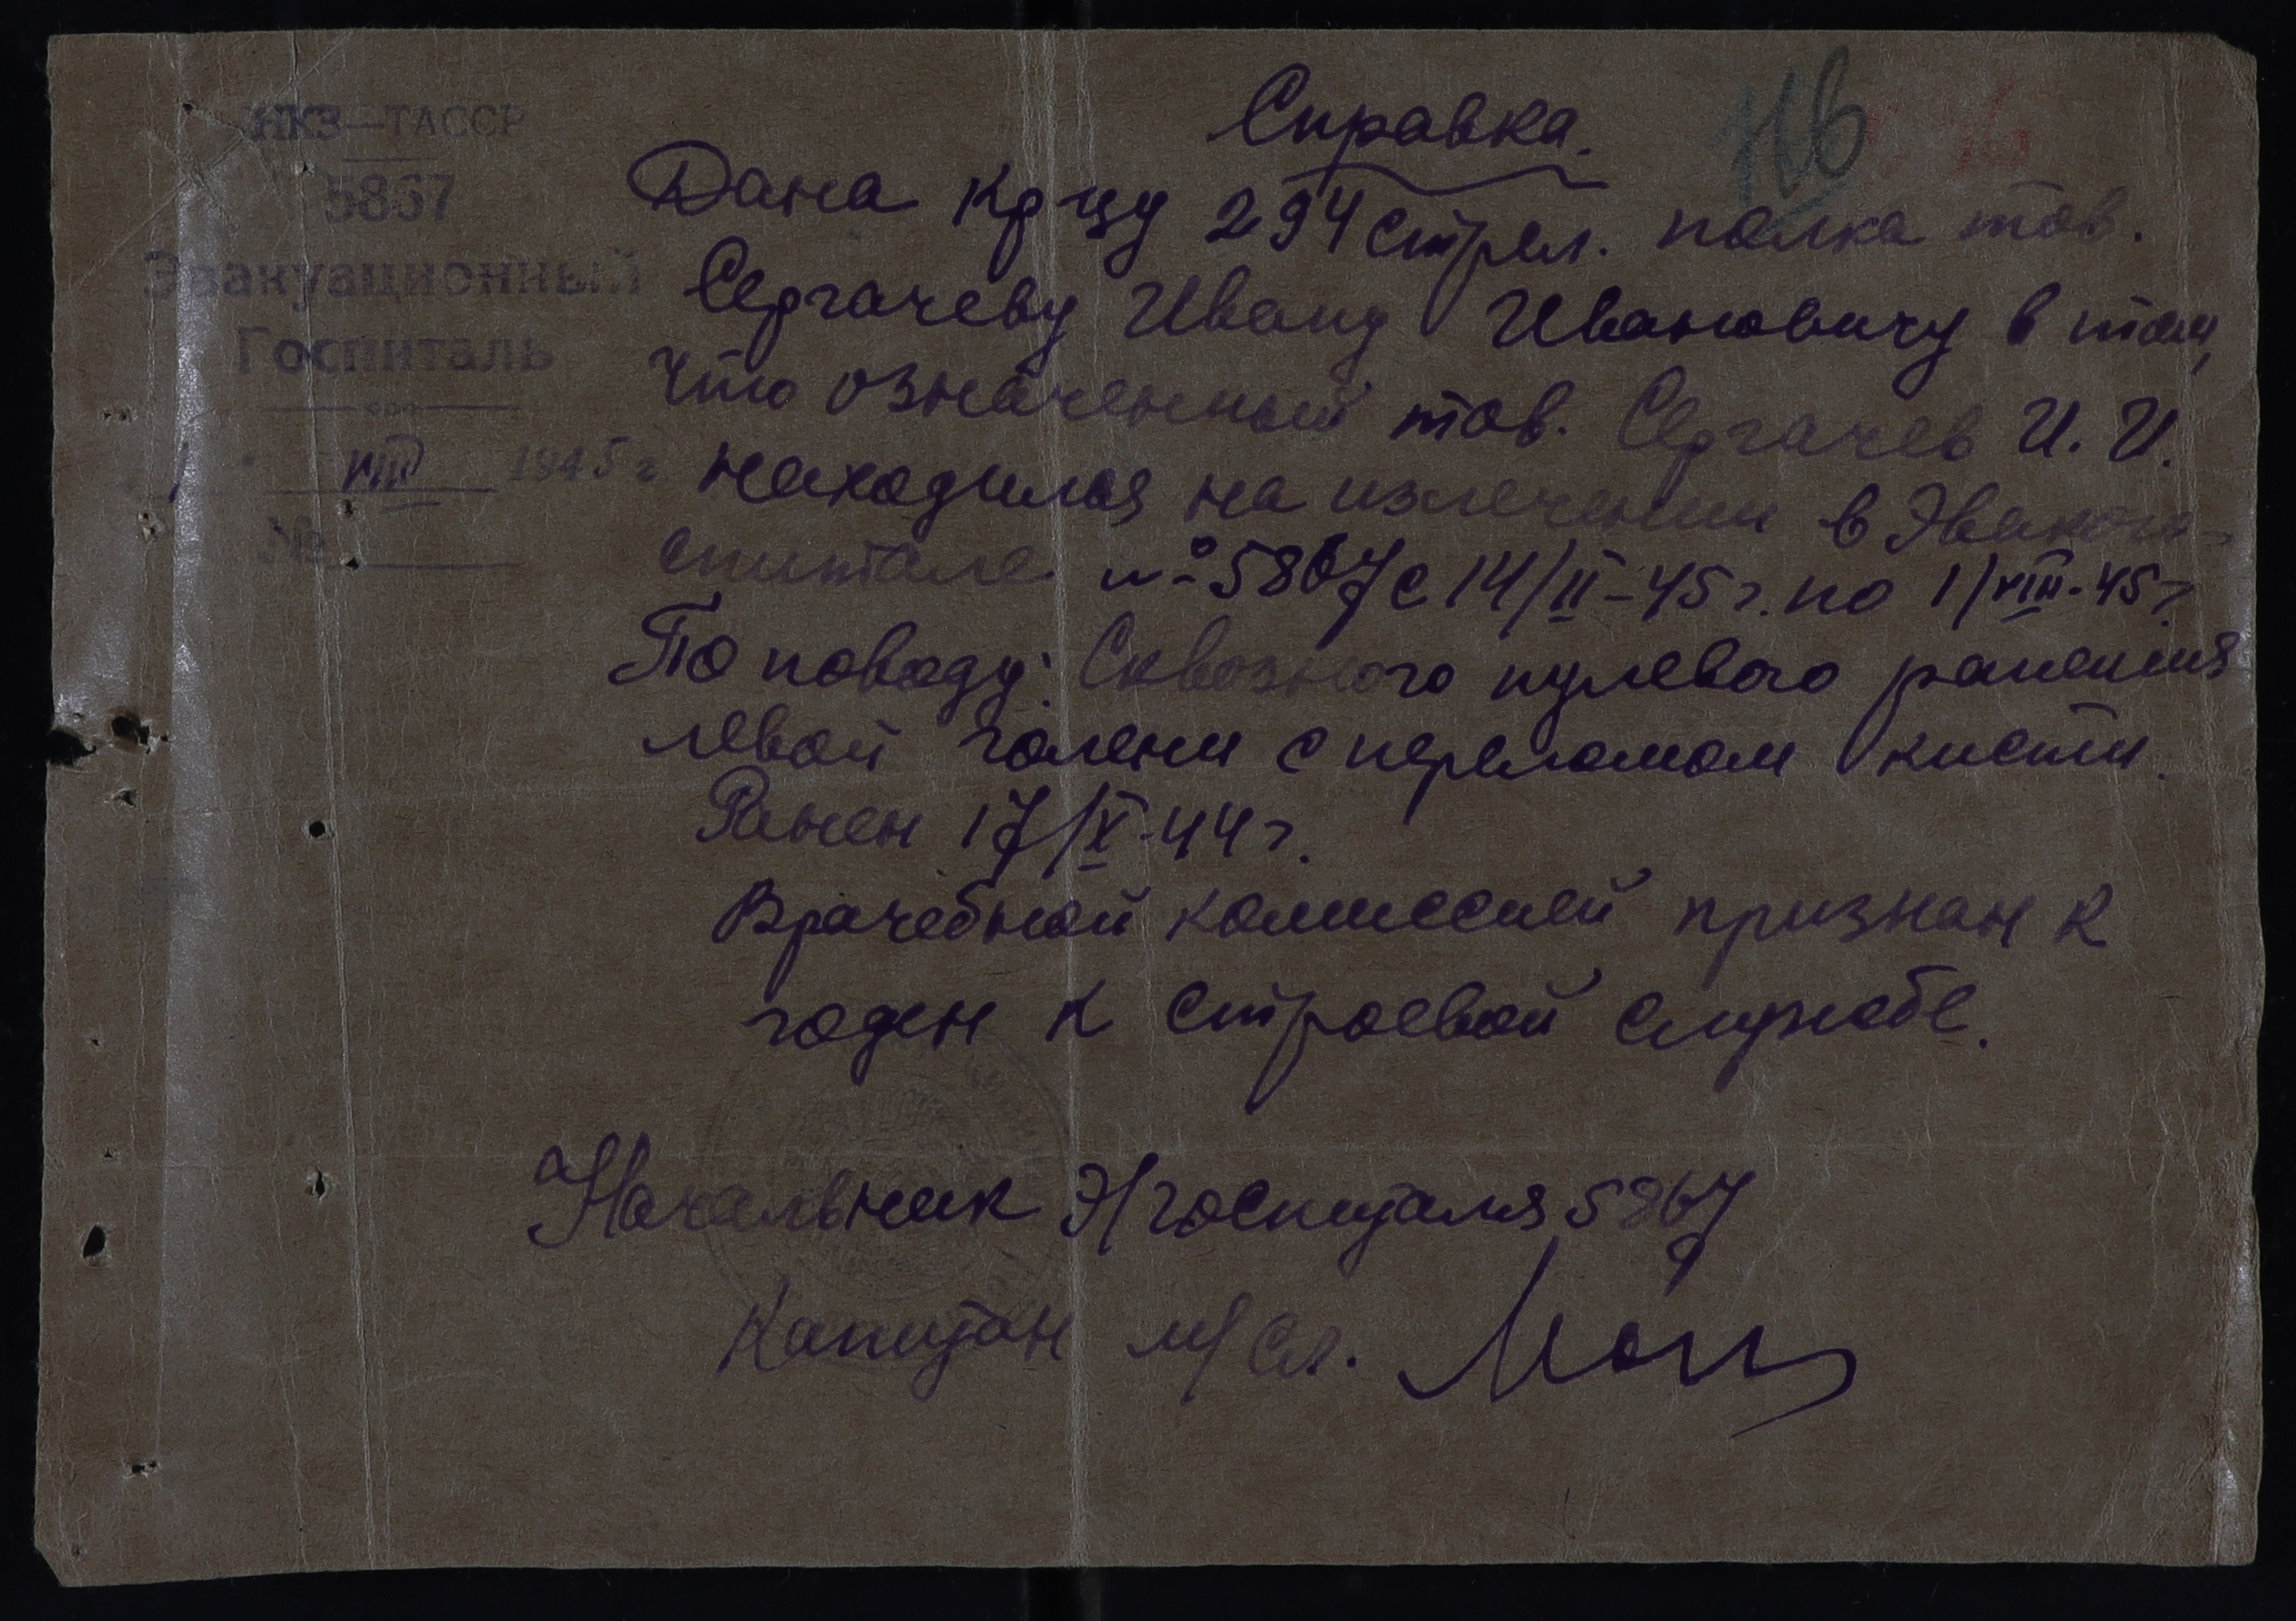 НКЗ—ТАССР
5867
Эвакуационный
Госпиталь
1 VIII 1945 г
№
116
Справка.
Дана кр-цу 294 стрел. полка тов.
Сергачеву Ивану Ивановичу в том,
что означенный тов. Сергачев И. И.
находился на излечении в Эвакого-
спитале № 5867 с 14/II-45 г. по 1/VIII-45 г.
По поводу: Сквозного пулевого ранения
левой голени с переломом кисти.
Ранен 17/X-44 г.
Врачебной комиссией признан к
годен к строевой службе.
Начальник Э/госпиталя 5867
Капитан м/сл.